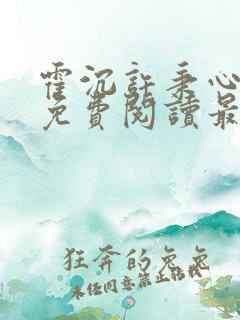 霍沉許秉心
免費閱讀最
狂奔的兔兔
未經同意禁止轉載